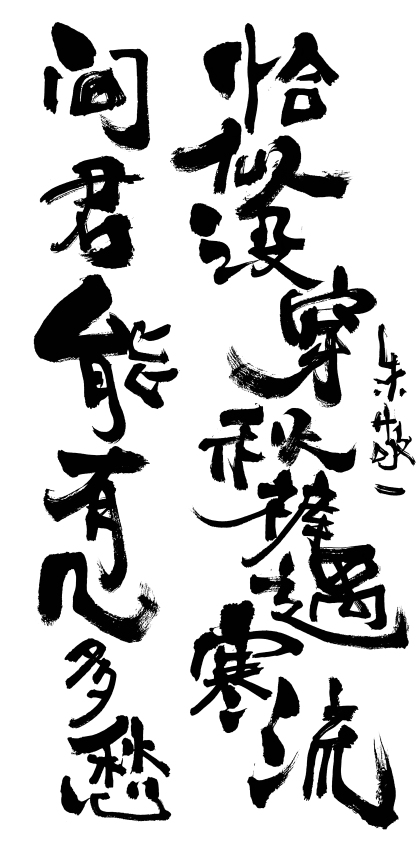 问君能有几多愁
恰似没穿秋裤遇寒流
朱敬一